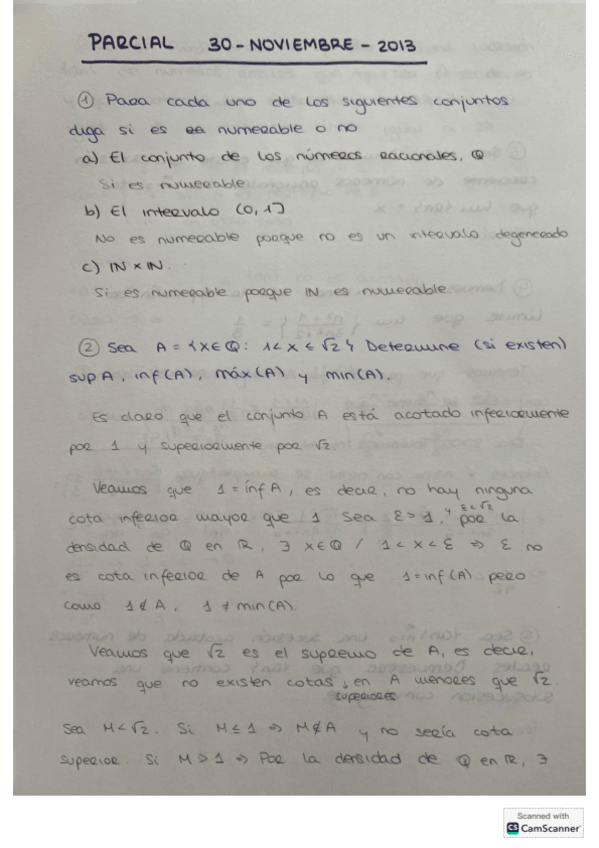 PARCIAL 30-NOVIEMBRE-2013
① Para cada uno de los siguientes conjuntos
diga si es numerable o no
a) El conjunto de los números racionales, Q
Si es numerable
b) El intervalo (0,1]
No es numerable porque no es un intervalo degenerado
c) IN x IN.
Si es numerable porque IN es numerable
② Sea A = {x∈Q: 1<x≤√2} Determine (si existen)
sup A, inf(A), máx(A) y min(A).
Es claro que el conjunto A está acotado inferiormente
por 1 y superiormente por √2.
Veamos que 1 = ínf A, es decir, no hay ninguna
cota inferior mayor que 1 Sea ε>1, y ε<√2 por la
densidad de Q en R, ∃ x∈Q / 1<x<ε ⇒ ε no
es cota inferior de A por lo que 1=inf(A) pero
como 1∉A, 1≠min(A).
Veamos que √2 es el supremo de A, es decir,
veamos que no existen cotas superiores en A menores que √2.
Sea M<√2. Si M≤1 ⇒ M∉A y no sería cota
superior. Si M>1 ⇒ Por la densidad de Q en R, ∃
Scanned with
CS CamScanner